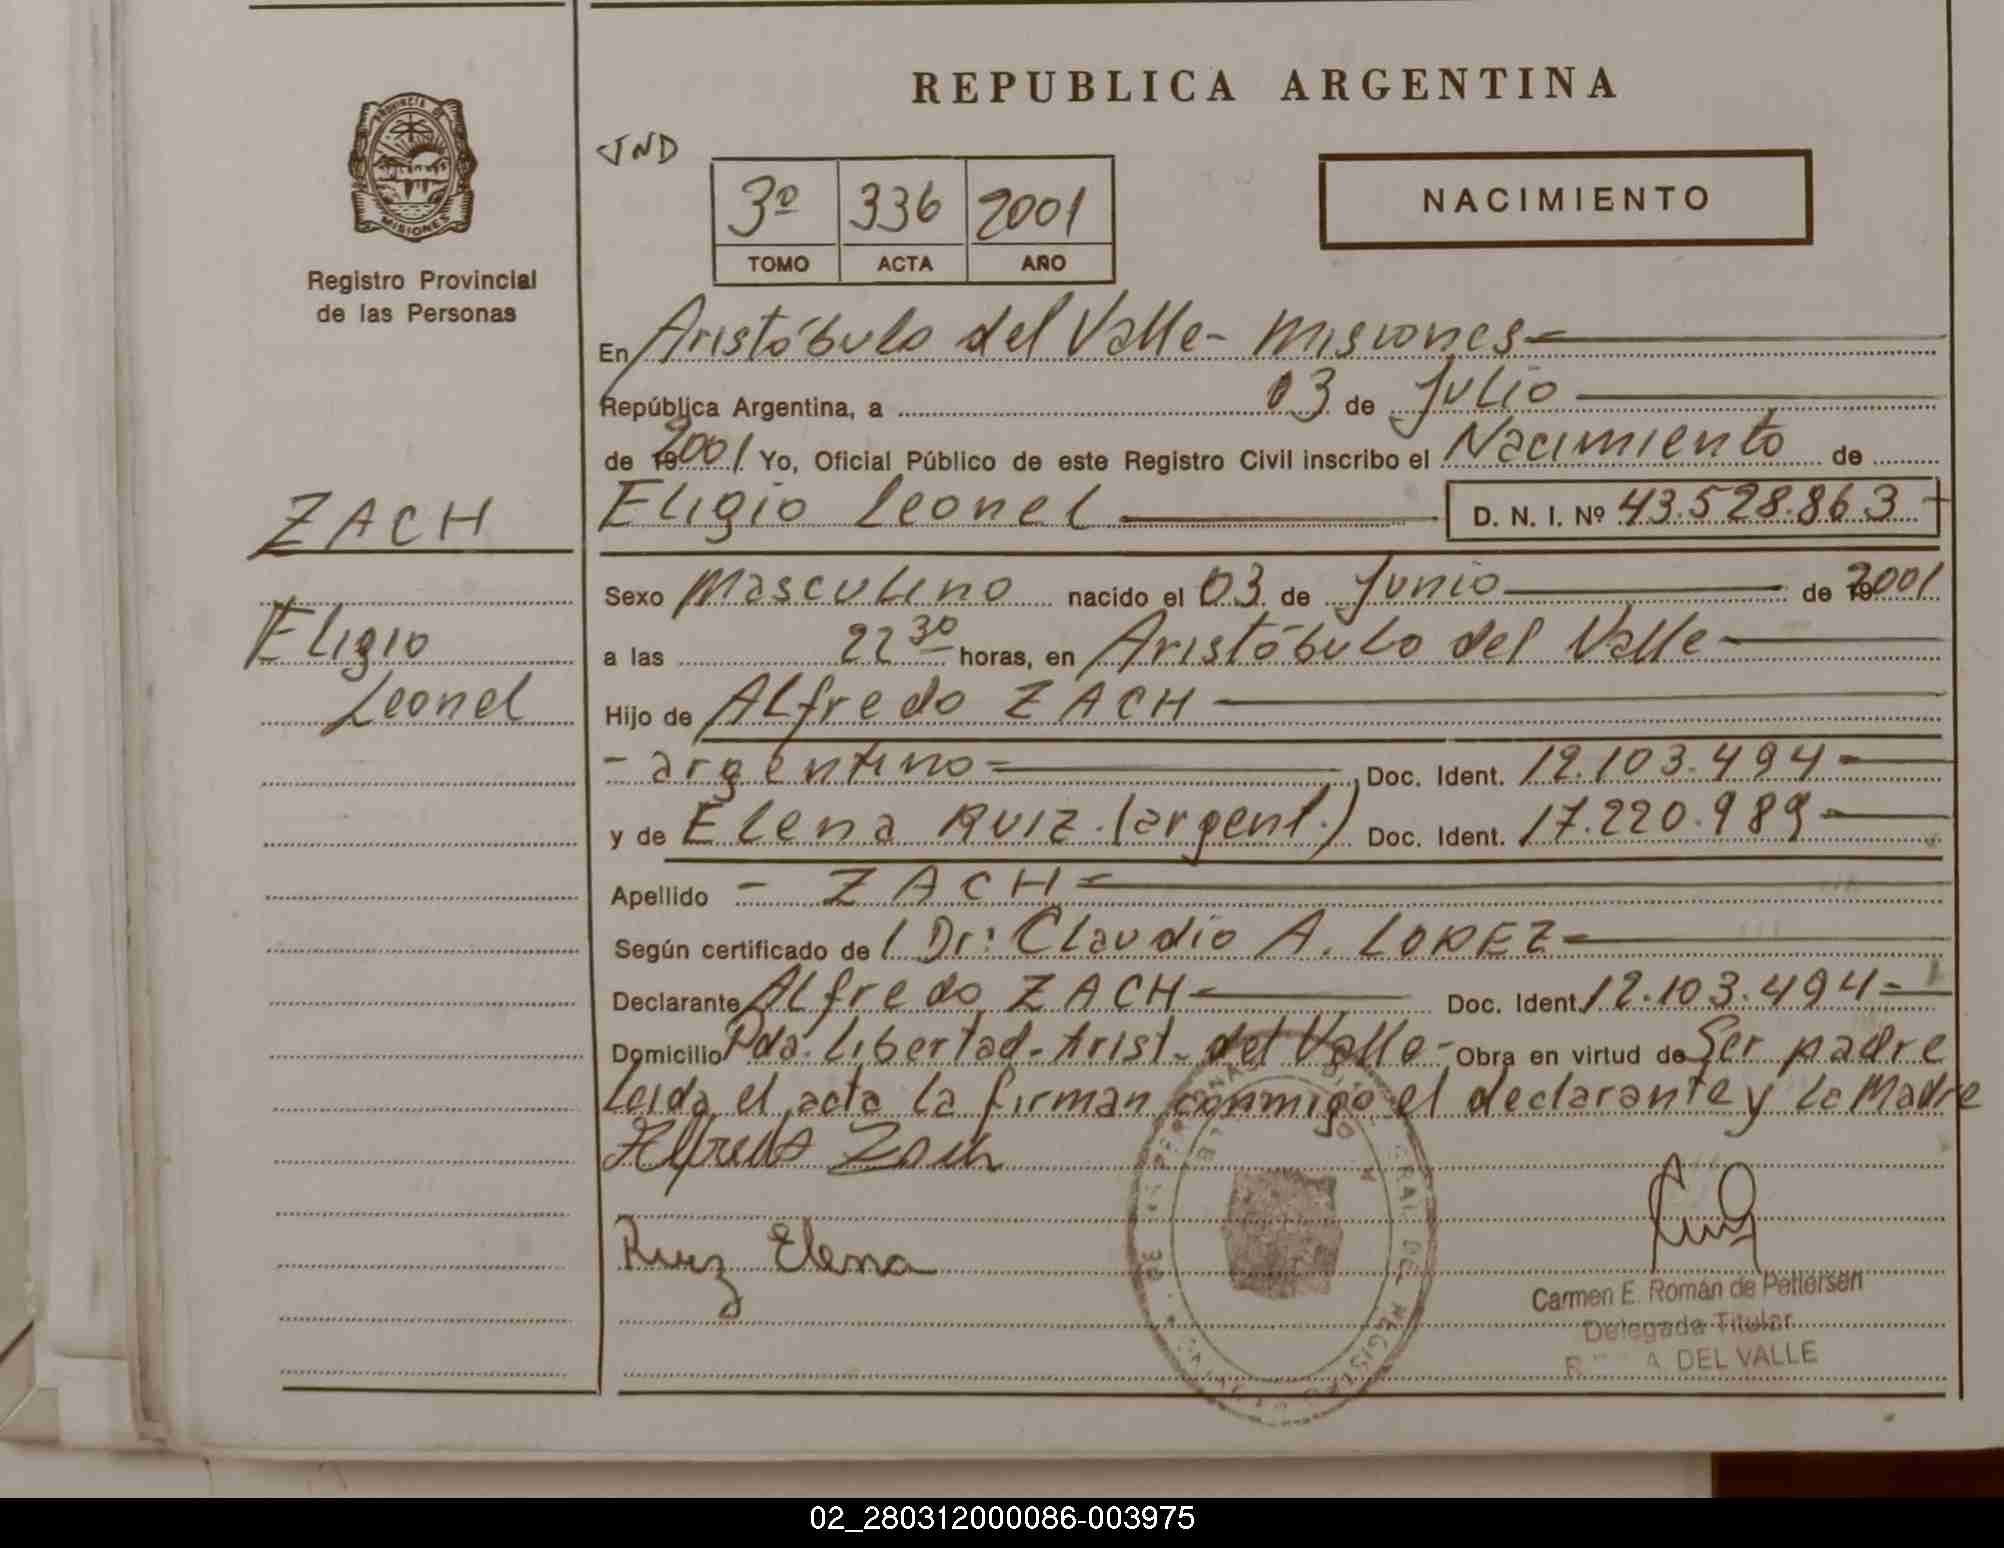 REPUBLICA ARGENTINA
PROVINCIA DE
MISIONES
Registro Provincial
de las Personas
JND
3º 336 2001
TOMO ACTA AÑO
NACIMIENTO
En Aristóbulo del Valle - Misiones
República Argentina, a 03 de Julio
de 2001 Yo, Oficial Público de este Registro Civil inscribo el Nacimiento de
ZACH
Eligio Leonel D. N. I. Nº 43.528.863
Sexo Masculino nacido el 03 de Junio de 2001
Eligio
a las 22 30 horas, en Aristóbulo del Valle
Leonel
Hijo de Alfredo ZACH
- argentino - Doc. Ident. 12.103.494 -
y de Elena RUIZ. (argent.) Doc. Ident. 17.220.989 -
Apellido - ZACH -
Según certificado de l Dr: Claudio A. LOPEZ -
Declarante Alfredo ZACH - Doc. Ident. 12.103.494 -
Domicilio Pda. Libertad - Arist. del Valle - Obra en virtud de Ser padre
Leida el acta la firman conmigo el declarante y la Madre
Alfredo Zach
Ruiz Elena
Carmen E. Román de Pettersen
Delegada Titular
A. DEL VALLE
02_280312000086-003975